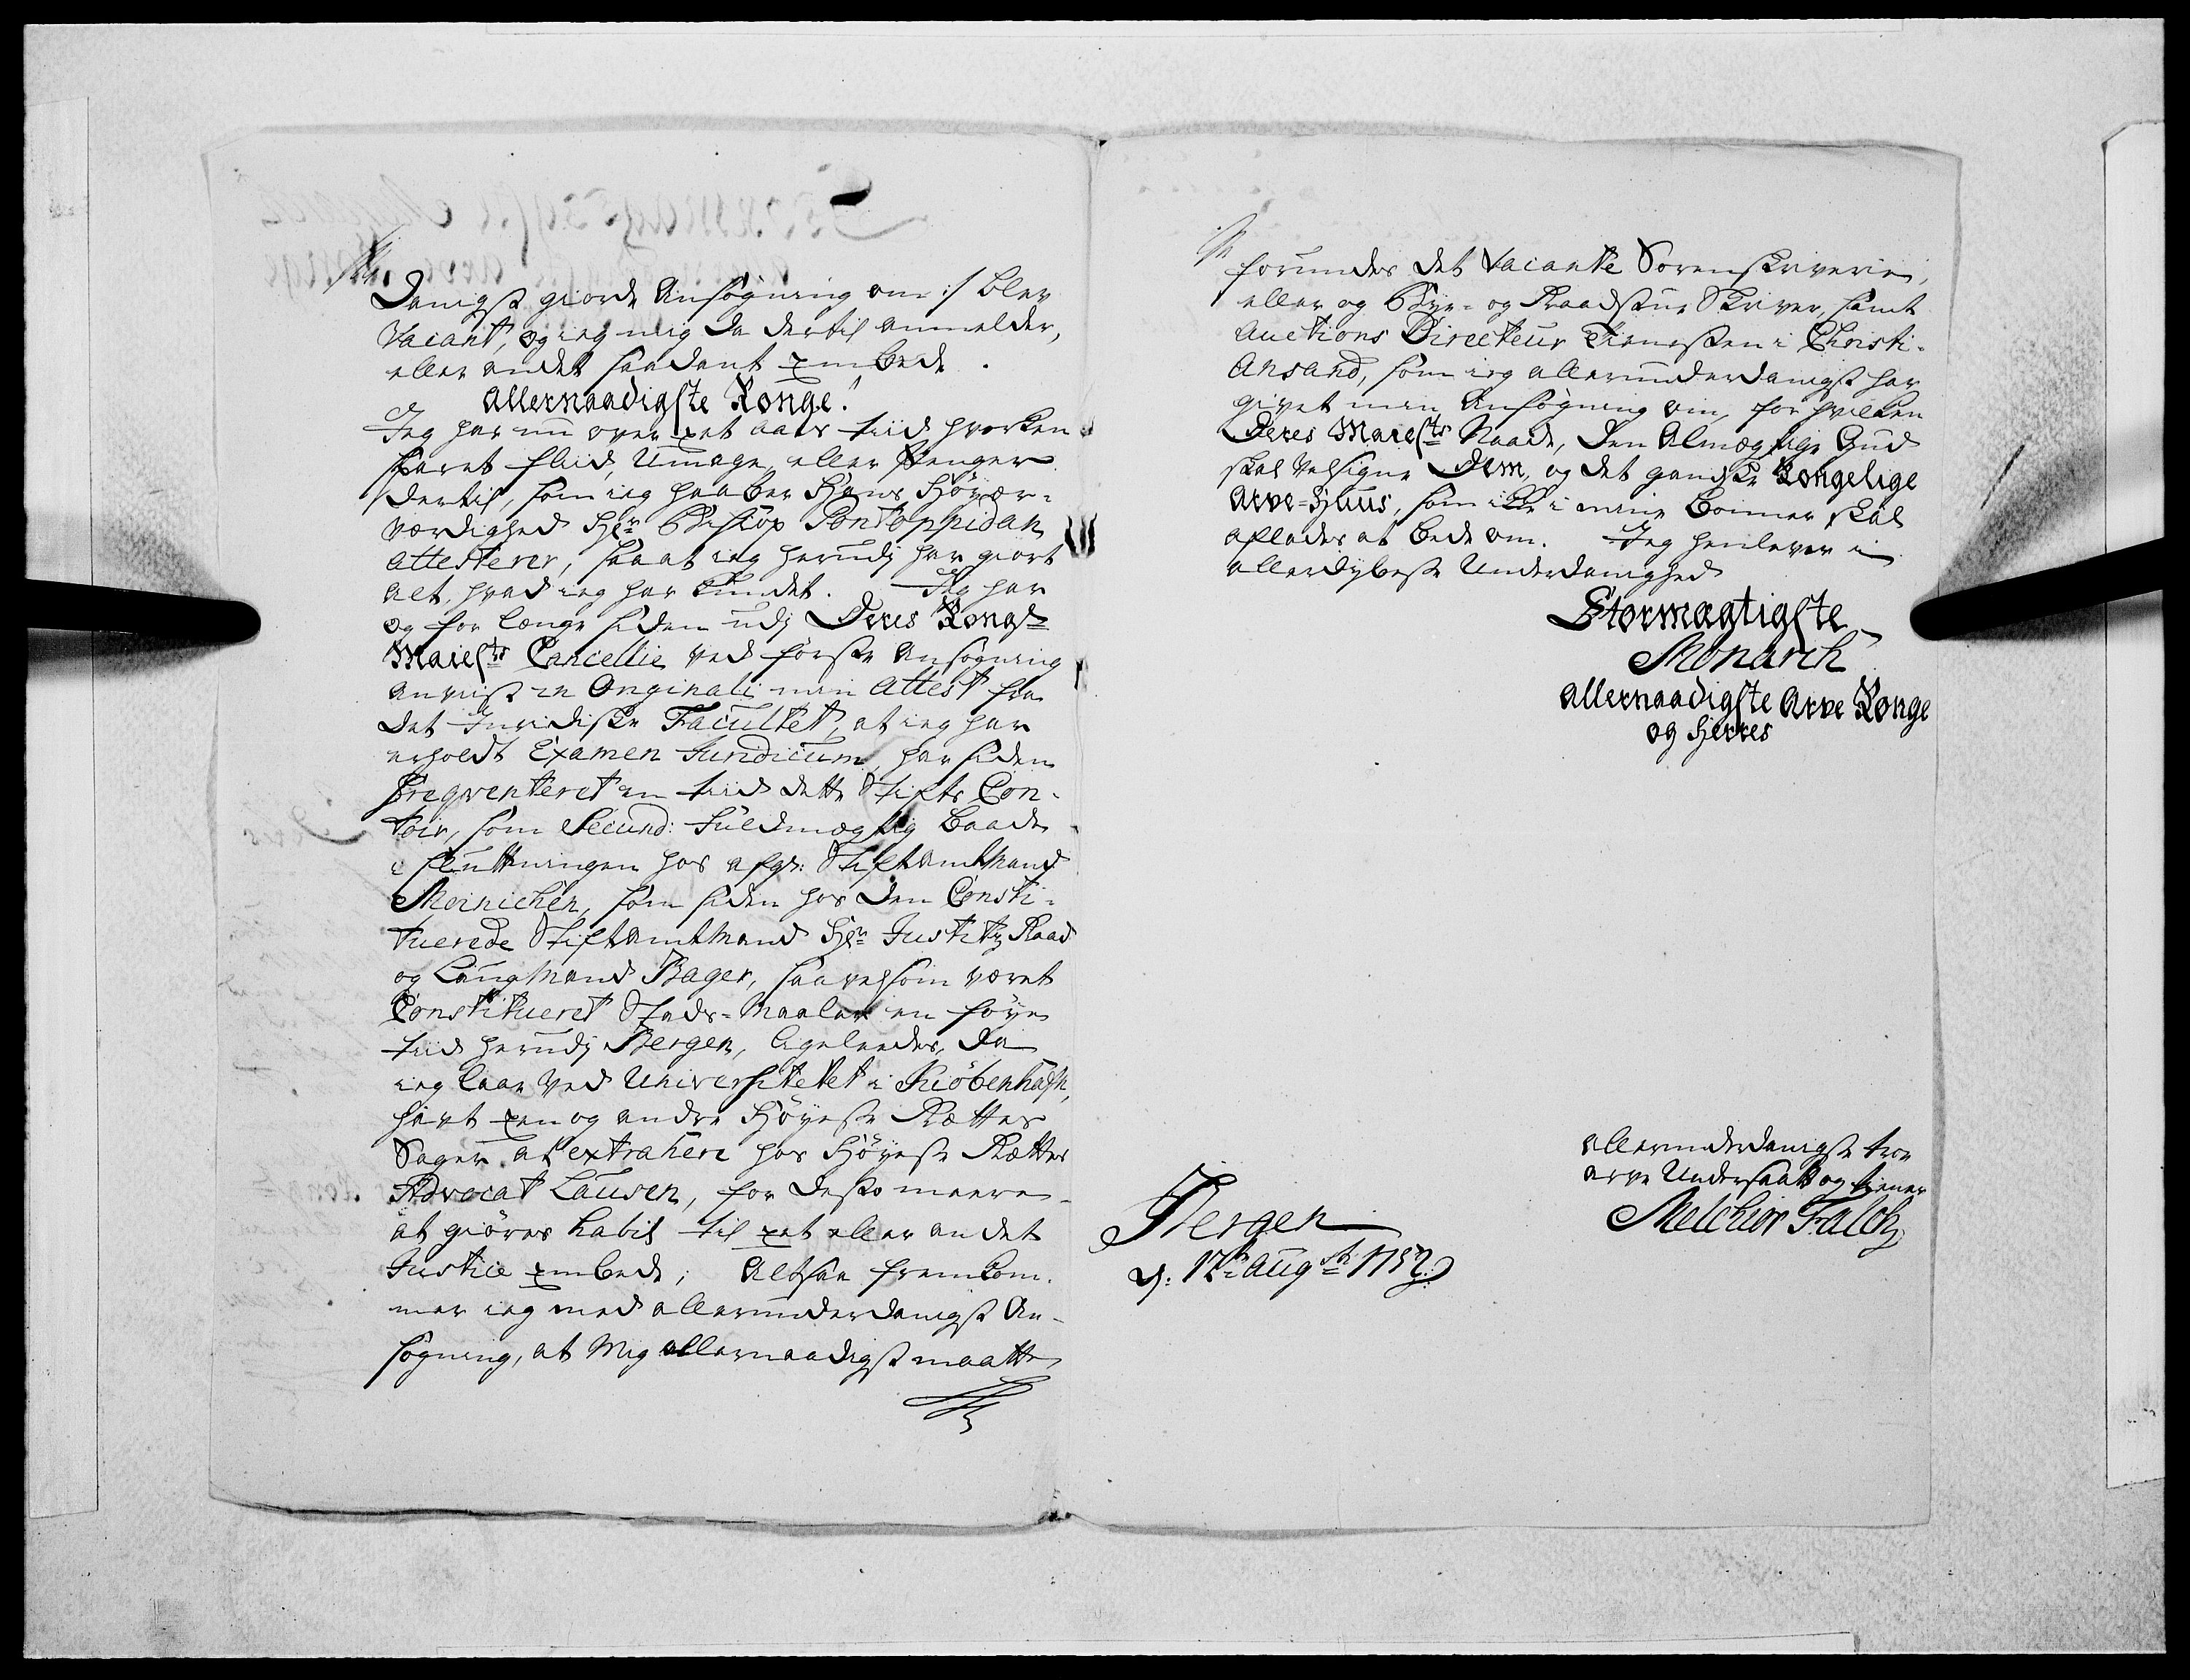 danigst giorde Ansøgning om :/ blev
Vacant, og ieg mig da dertil anmelder,
eller andet saadant Embede.
Allernaadigste Konge!
Jeg har nu over Eet aars tiid hverken
sparet fliid, Umage, eller Penger
dertil, som ieg haaber Hans Høyær-
værdighed Hr Biskop Pontoppidan
attesterer, saa at ieg herudj har giort
alt, hvad ieg har kundet. Jeg har
og for længe siden udj Deres Kongl
Maiests Cancellie ved første Ansøgning
anviist in Originali min Attest fra
det Juridiske Facultet, at ieg har
erholdt Examen Juridicum, har siden
freqventeret en tiid dette Stifts Con-
toir, som Secund: Fuldmægtig baade
i slutningen hos afg: Stiftamtmand
Meinichen, som siden hos den Consti-
tuerede Stiftamtmand Hr Justitz Raad
og Laugmand Bager, saavelsom været
Constitueret Stads-Maaler en føye
tiid herudj Bergen, ligeleedes, da
ieg laae ved Universitetet i Kiøbenhafn,
havt Een og anden Høyeste Rættes
Sager at extrahere hos Høyeste Rættes
Advocat Lausen, for desto meere
at giøres habil til Eet eller andet
Justice Embede; Altsaa fremkom-
mer ieg med allerunderdanigst An-
søgning, at Mig allernaadigst maatte
forundes det Vacante Sorenskriverie,
eller og Bye- og Raadstue Skriver, samt
Auctions Directeur Tienesten i Christi-
ansand, som ieg allerunderdanigst har
givet min Ansøgning om, for hvilken
Deres Maiests Naade, den Almægtige Gud
skal velsigne Dem, og det gandske Kongelige
Arve-Huus, som ikke i mine bønner skal
aflades at bede om. Jeg henlever i
allerdybeste Underdanighed
Stormægtigste
Monarch
Allernaadigste Arve Konge
og Herres
allerunderdanigste troe
arve Undersaat og tiener
Melchior Falch
Bergen
d: 12te Augsti 1752.